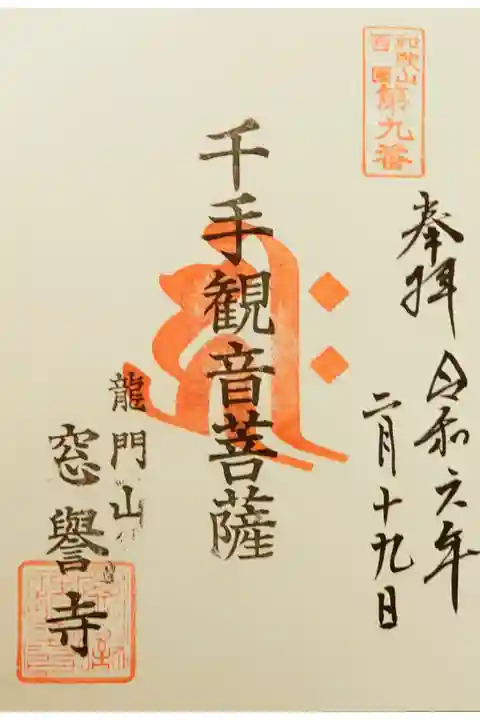 和歌山
西國
第九番
奉拝 令和六年
二月十九日
千手観音菩薩
龍門山
窓譽寺